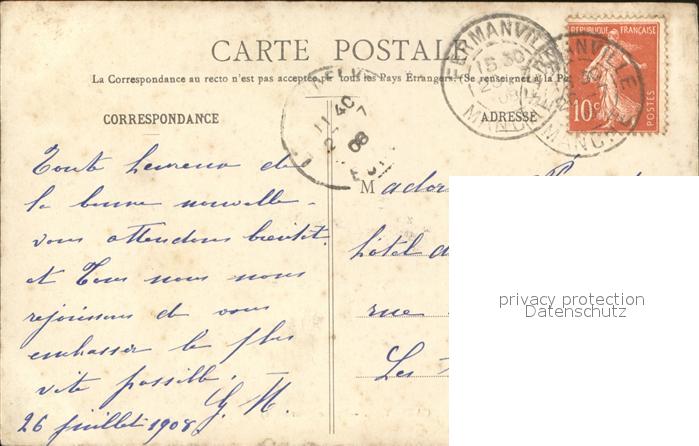 CARTE POSTALE
La Correspondance au recto n'est pas acceptée par tous les Pays Étrangers. (Se renseigner à la
CORRESPONDANCE
ADRESSE
REPUBLIQUE FRANÇAISE
10c
POSTES
FERMANVILLE
MANCHE
15 30
11 40
08
Toute heureuse de
la bonne nouvelle -
vous attendons bientôt.
et Tous nous nous
rejouissons de vous
embrasser le plus
vite possible.
G. H.
26 juillet 1908.
Mada
hôtel d
rue
Les
privacy protection
Datenschutz